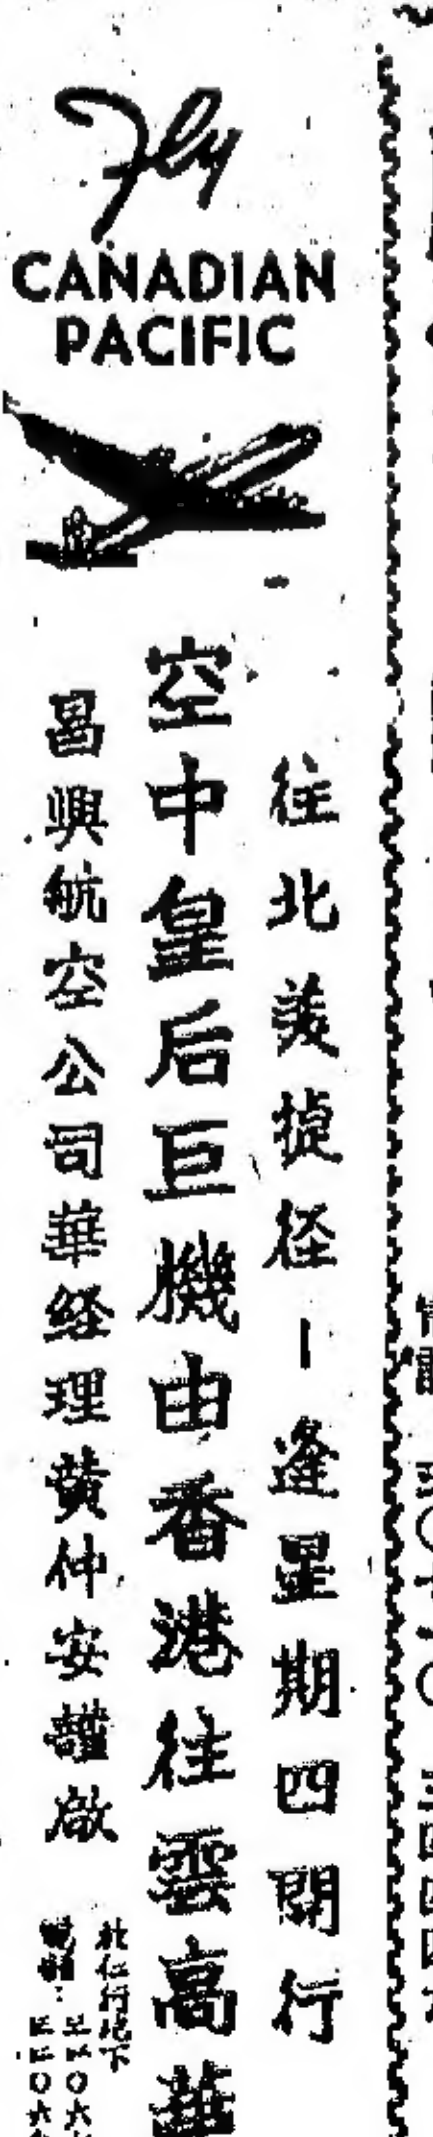 Fly
CANADIAN
PACIFIC
往北美捷徑－逢星期四開行
空中皇后巨機由香港往雲高華
昌興航空公司華経理黄仲安謹啟
行地下